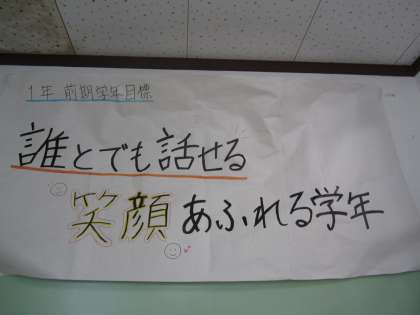 1年 前期学年目標
誰とでも話せる
笑顔あふれる学年